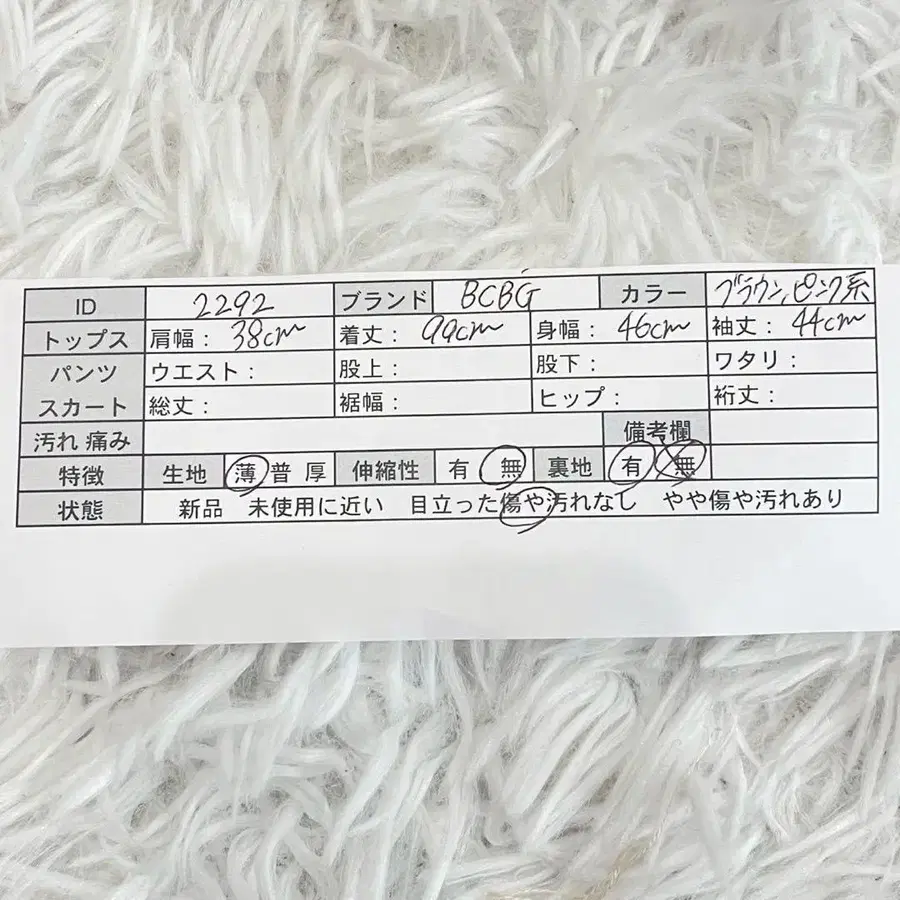 ID 2292 ブランド BCBG カラー ブラウン,ピンク系
トップス 肩幅: 38cm 着丈: 99cm 身幅: 46cm 袖丈: 44cm
パンツ ウエスト: 股上: 股下: ワタリ:
スカート 総丈: 裾幅: ヒップ: 裄丈:
汚れ 痛み 備考欄
特徴 生地 薄 普 厚 伸縮性 有 無 裏地 有 無
状態 新品 未使用に近い 目立った傷や汚れなし やや傷や汚れあり